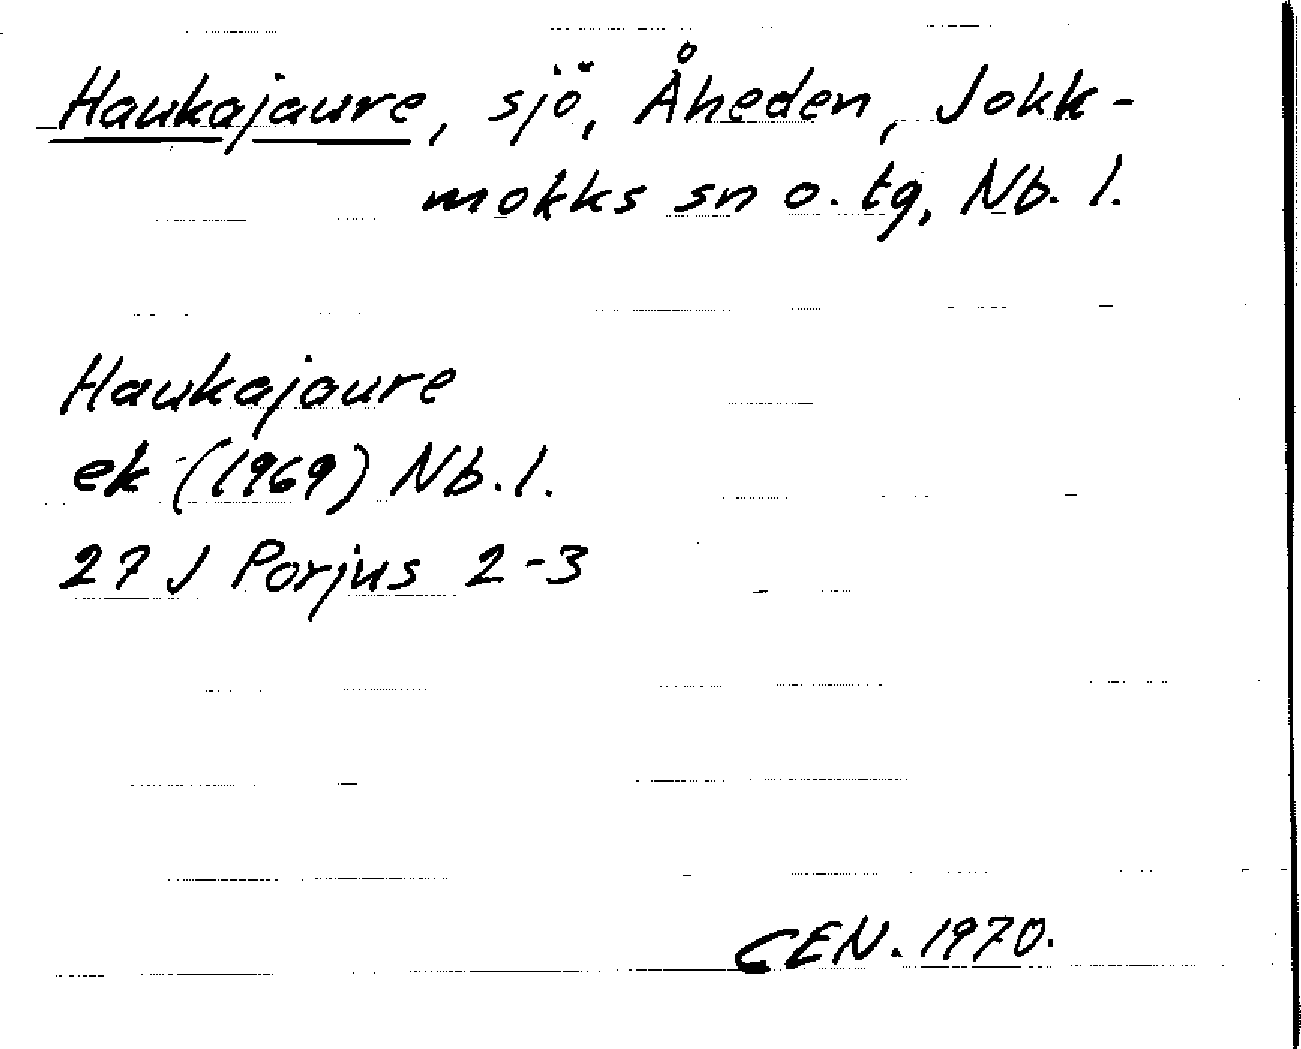 Haukajaure, sjö, Åheden, Jokk-
mokks sn o. tg, Nb. l.
Haukajaure
ek (1969) Nb. l.
27 J Porjus 2-3
CEN. 1970.